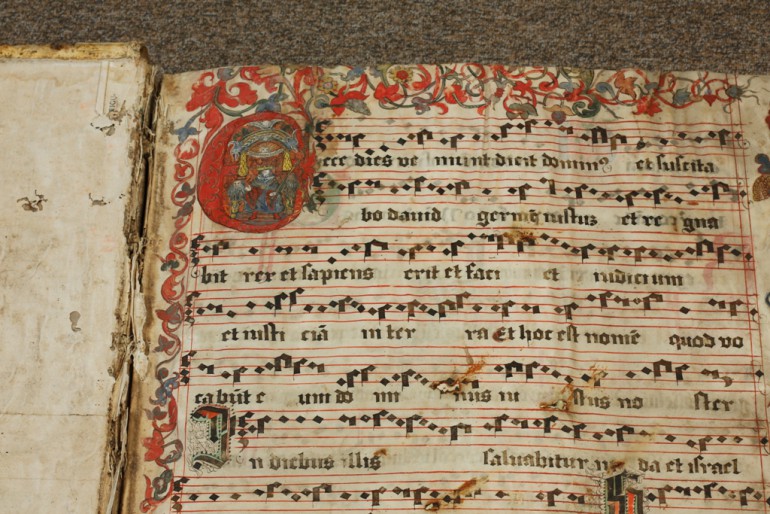 Ecce dies veniunt dicit domin⁹ et suscita
bo dauid germē iustuz et regna
bit rex et sapiens erit et faci et iudicium
et iusti ciā in ter ra Et hoc est nomē quod vo
cabūt e um do mi nus iu stus no ster
In diebus illis saluabitur iu da et israel